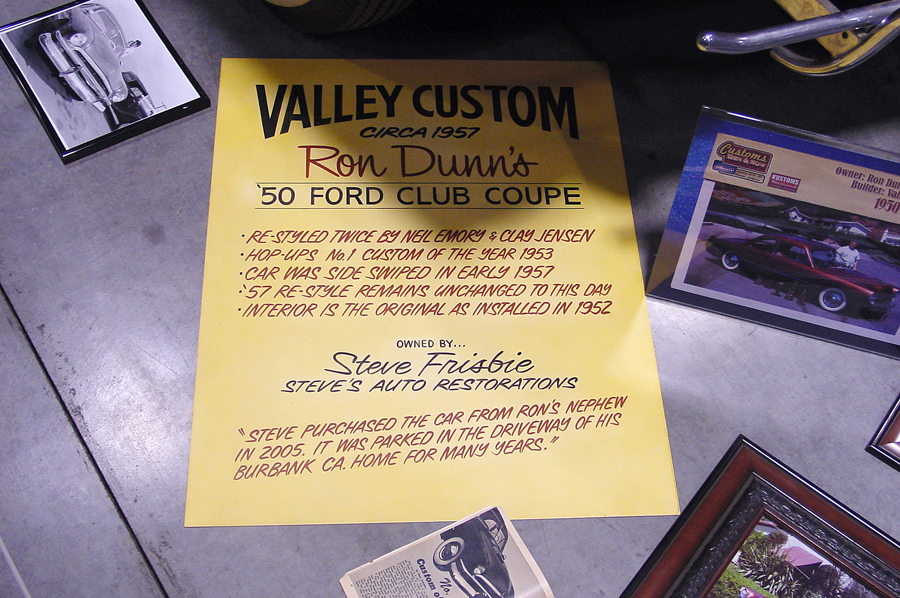 VALLEY CUSTOM
CIRCA 1957
Ron Dunn's
'50 FORD CLUB COUPE
• RE-STYLED TWICE BY NEIL EMORY & CLAY JENSEN
• HOP-UPS No.1 CUSTOM OF THE YEAR 1953
• CAR WAS SIDE SWIPED IN EARLY 1957
• '57 RE-STYLE REMAINS UNCHANGED TO THIS DAY
• INTERIOR IS THE ORIGINAL AS INSTALLED IN 1952
OWNED BY...
Steve Frisbie
STEVE'S AUTO RESTORATIONS
"STEVE PURCHASED THE CAR FROM RON'S NEPHEW
IN 2005. IT WAS PARKED IN THE DRIVEWAY OF HIS
BURBANK CA. HOME FOR MANY YEARS."
Customs
THEN & NOW
KUSTOMS
Owner: Ron
Builder:
1950
No.
Custom